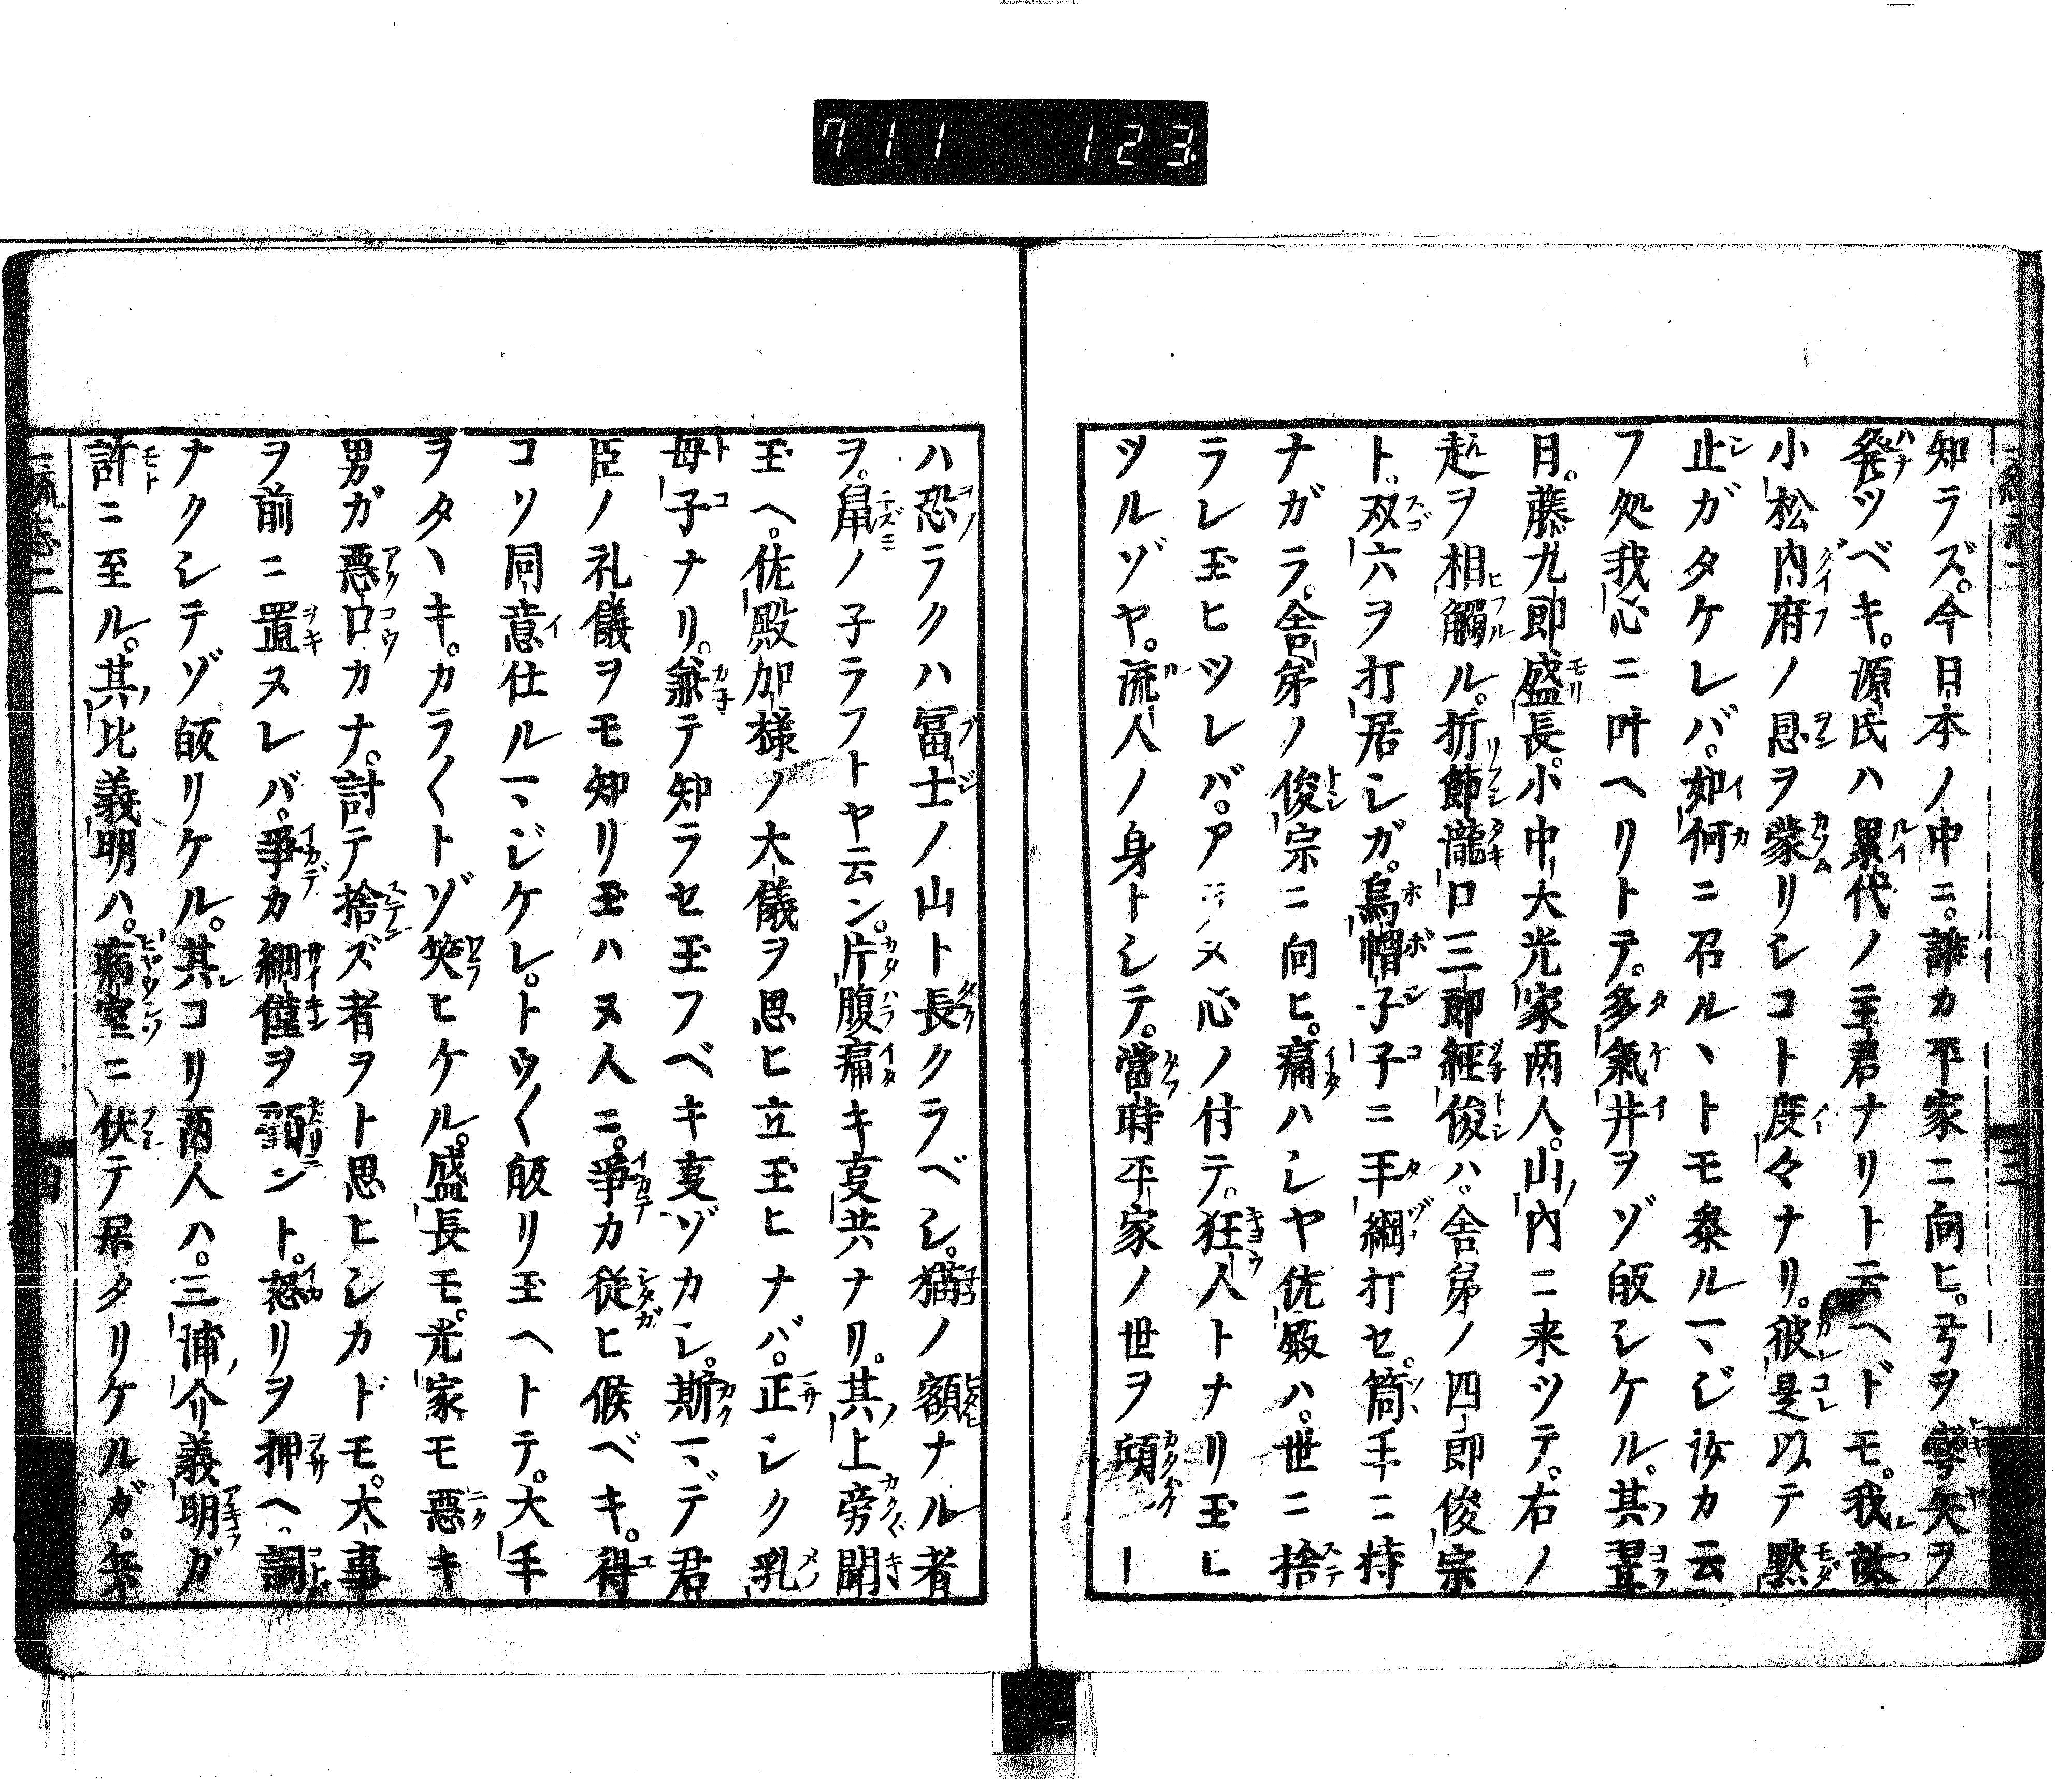 711 123
知ラズ。今日本ノ中ニ。誰カ平家ニ向ヒ。弓ヲ彎矢ヲ
発ツベキ。源氏ハ累代ノ主君ナリト云ヘドモ。我誅
小松内府ノ恩ヲ蒙リシコト度々ナリ。彼是以テ黙
止ガタケレバ。如何ニ召ルヽトモ参ルマジ汝カ云
フ処我心ニ叶ヘリトテ。多氣井ヲゾ皈シケル。其翌
日。藤九郎盛長。小中太光家两人。山内ニ来ツテ。右ノ
赴ヲ相觸ル。折節瀧口三郎經俊ハ。舎弟ノ四郎俊宗
ト。双六ヲ打居シガ。烏帽子子ニ手綱打セ。筒手ニ持
ナガラ。舎弟ノ俊宗ニ向ヒ。痛ハシヤ佐殿ハ。世ニ捨
ラレ玉ヒツレバ。アラヌ心ノ付テ。狂人トナリ玉ヒ
ツルゾヤ。流人ノ身トシテ。當時平家ノ世ヲ傾ー
ハ恐ラクハ冨士ノ山ト長クラベシ。猫ノ額ナル者
ヲ。鼠ノ子ラフトヤ云ン。片腹痛キ叓共ナリ。其上旁聞
玉ヘ。佐殿加様ノ大儀ヲ思ヒ立玉ヒナバ。正シク乳
母子ナリ。兼テ知ラセ玉フベキ叓ゾカシ。斯マデ君
臣ノ礼儀ヲモ知リ玉ハヌ人ニ。爭カ従ヒ候ベキ。得
コソ同意仕ルマジケレ。トウ〱皈リ玉ヘトテ。大手
ヲタヽキ。カラ〱トゾ笑ヒケル。盛長モ。光家モ悪キ
男ガ悪口カナ。討テ捨ズ者ヲト思ヒシカドモ。大事
ヲ前ニ置ヌレバ。爭カ細僅ヲ顧ント。怒リヲ押ヘ、詞
ナクシテゾ皈リケル。其コリ两人ハ。三浦介義明ガ
許ニ至ル。其比義明ハ。病室ニ伏テ居タリケルガ。矣
三
四